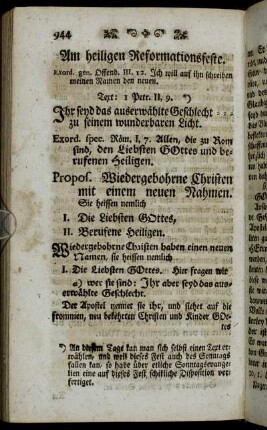 944
Am heiligen Reformationsfeste.
Exord. gen. Offenb. III. 12. Ich will auf ihn schreiben
meinen Namen den neuen.
Text: 1 Petr. II, 9. *)
Ihr seyd das auserwählte Geschlecht - -
zu seinem wunderbaren Licht.
Exord. spec. Röm. I, 7. Allen, die zu Rom
sind, den Liebsten GOttes und be-
rufenen Heiligen.
Propos. Wiedergebohrne Christen
mit einem neuen Nahmen.
Sie heissen nemlich
I. Die Liebsten GOttes,
II. Berufene Heiligen.
Wiedergebohrne Christen haben einen neuen
Namen, sie heissen nemlich
I. Die Liebsten GOttes. Hier fragen wir
a) wer sie sind: Ihr aber seyd das aus-
erwählte Geschlecht.
Der Apostel nennet sie ihr, und siehet auf die
frommen, neu bekehrten Christen und Kinder GOt-
tes
*) An diesem Tage kan man sich selbst einen Text er-
wählen, und weil dieses Fest auch des Sonntags
fallen kan, so habe über etliche Sonntagsevange-
lien eine auf dieses Fest schikliche Disposition ver-
fertiget.